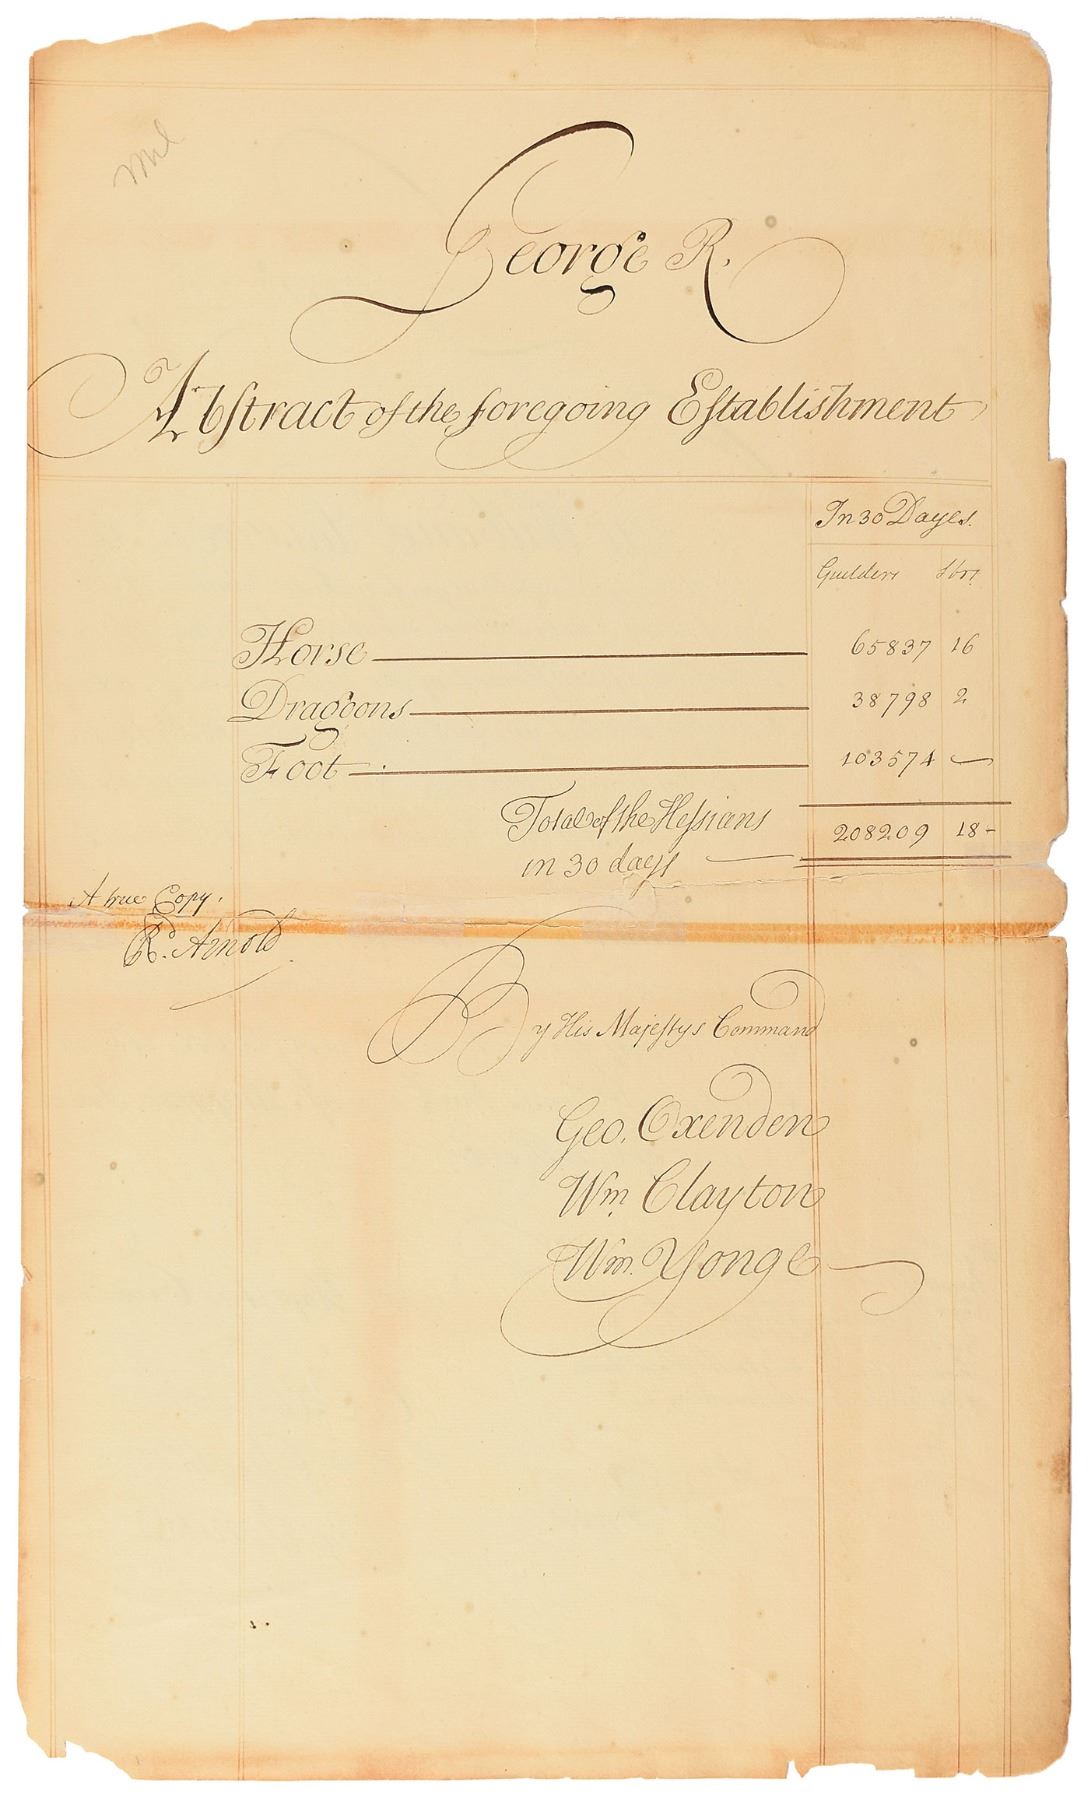 George R.
Abstract of the foregoing Establishment
In 30 Dayes.
Guilders Stvrs
Horse 65837 16
Dragoons 38798 2
Foot 103574 —
Total of the Hessians
in 30 days 208209 18 -
A true Copy.
Rd. Arnold
By His Majestys Command
Geo. Oxenden
Wm. Clayton
Wm. Yonge